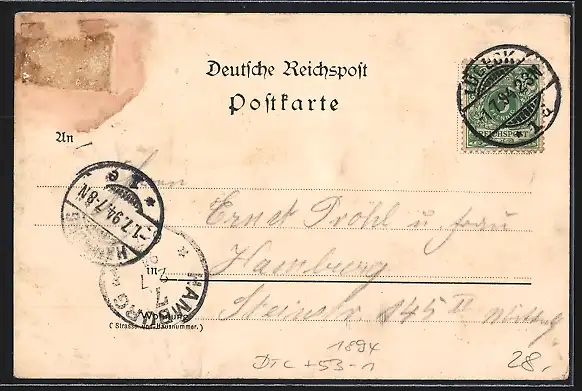 Deutsche Reichspost
Postkarte
LÜBECK
1.7.94.2-3N
* 1. a.
REICHSPOST
An
* 1 e
-1.7.94.7-8N
HAMBURG
Herrn
Ernst Pröhl u. Frau
in Hamburg
* HAMBURG *
7
Wohnung
(Strasse und Hausnummer.)
Steinstr 145 II
1894
DTC +53-11
28.-